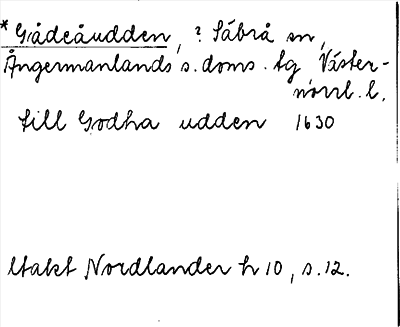 * Gådeåudden, ? Säbrå sn,
Ångermanlands s. doms. tg Väster-
norrl. l.
till Godha udden 1630
Utakt Nordlander h 10, s. 12.